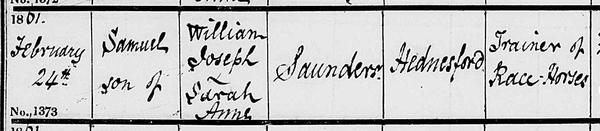 1801.
February
24th
No., 1373
Samuel
son of
William
Joseph
&
Sarah
Anne
Saunders
Hednesford
Trainer of
Race-Horses